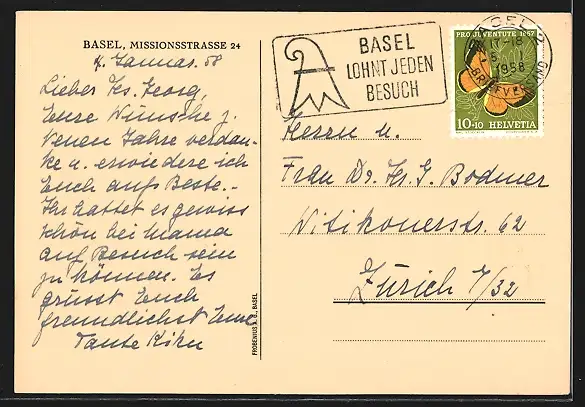 BASEL, MISSIONSSTRASSE 24
4. Januar 58
Lieber Hs. Georg,
Eure Wünsche z.
Neuen Jahre verdan-
ke u. erwiedere ich
Euch aufs Beste.-
Ihr hattet es gewiss
schön bei Mama
auf Besuch sein
zu können. Es
grüsst Euch
freundlichst Eure
Tante Kiku
FROBENIUS A. G., BASEL
BASEL
LOHNT JEDEN
BESUCH
BASEL
1958
BRIEFVERSAND
PRO JUVENTUTE 1957
10+10 HELVETIA
Herrn u.
Frau Dr. Hs. G. Bodmer
Witikonerstr. 62
Zürich 7/32